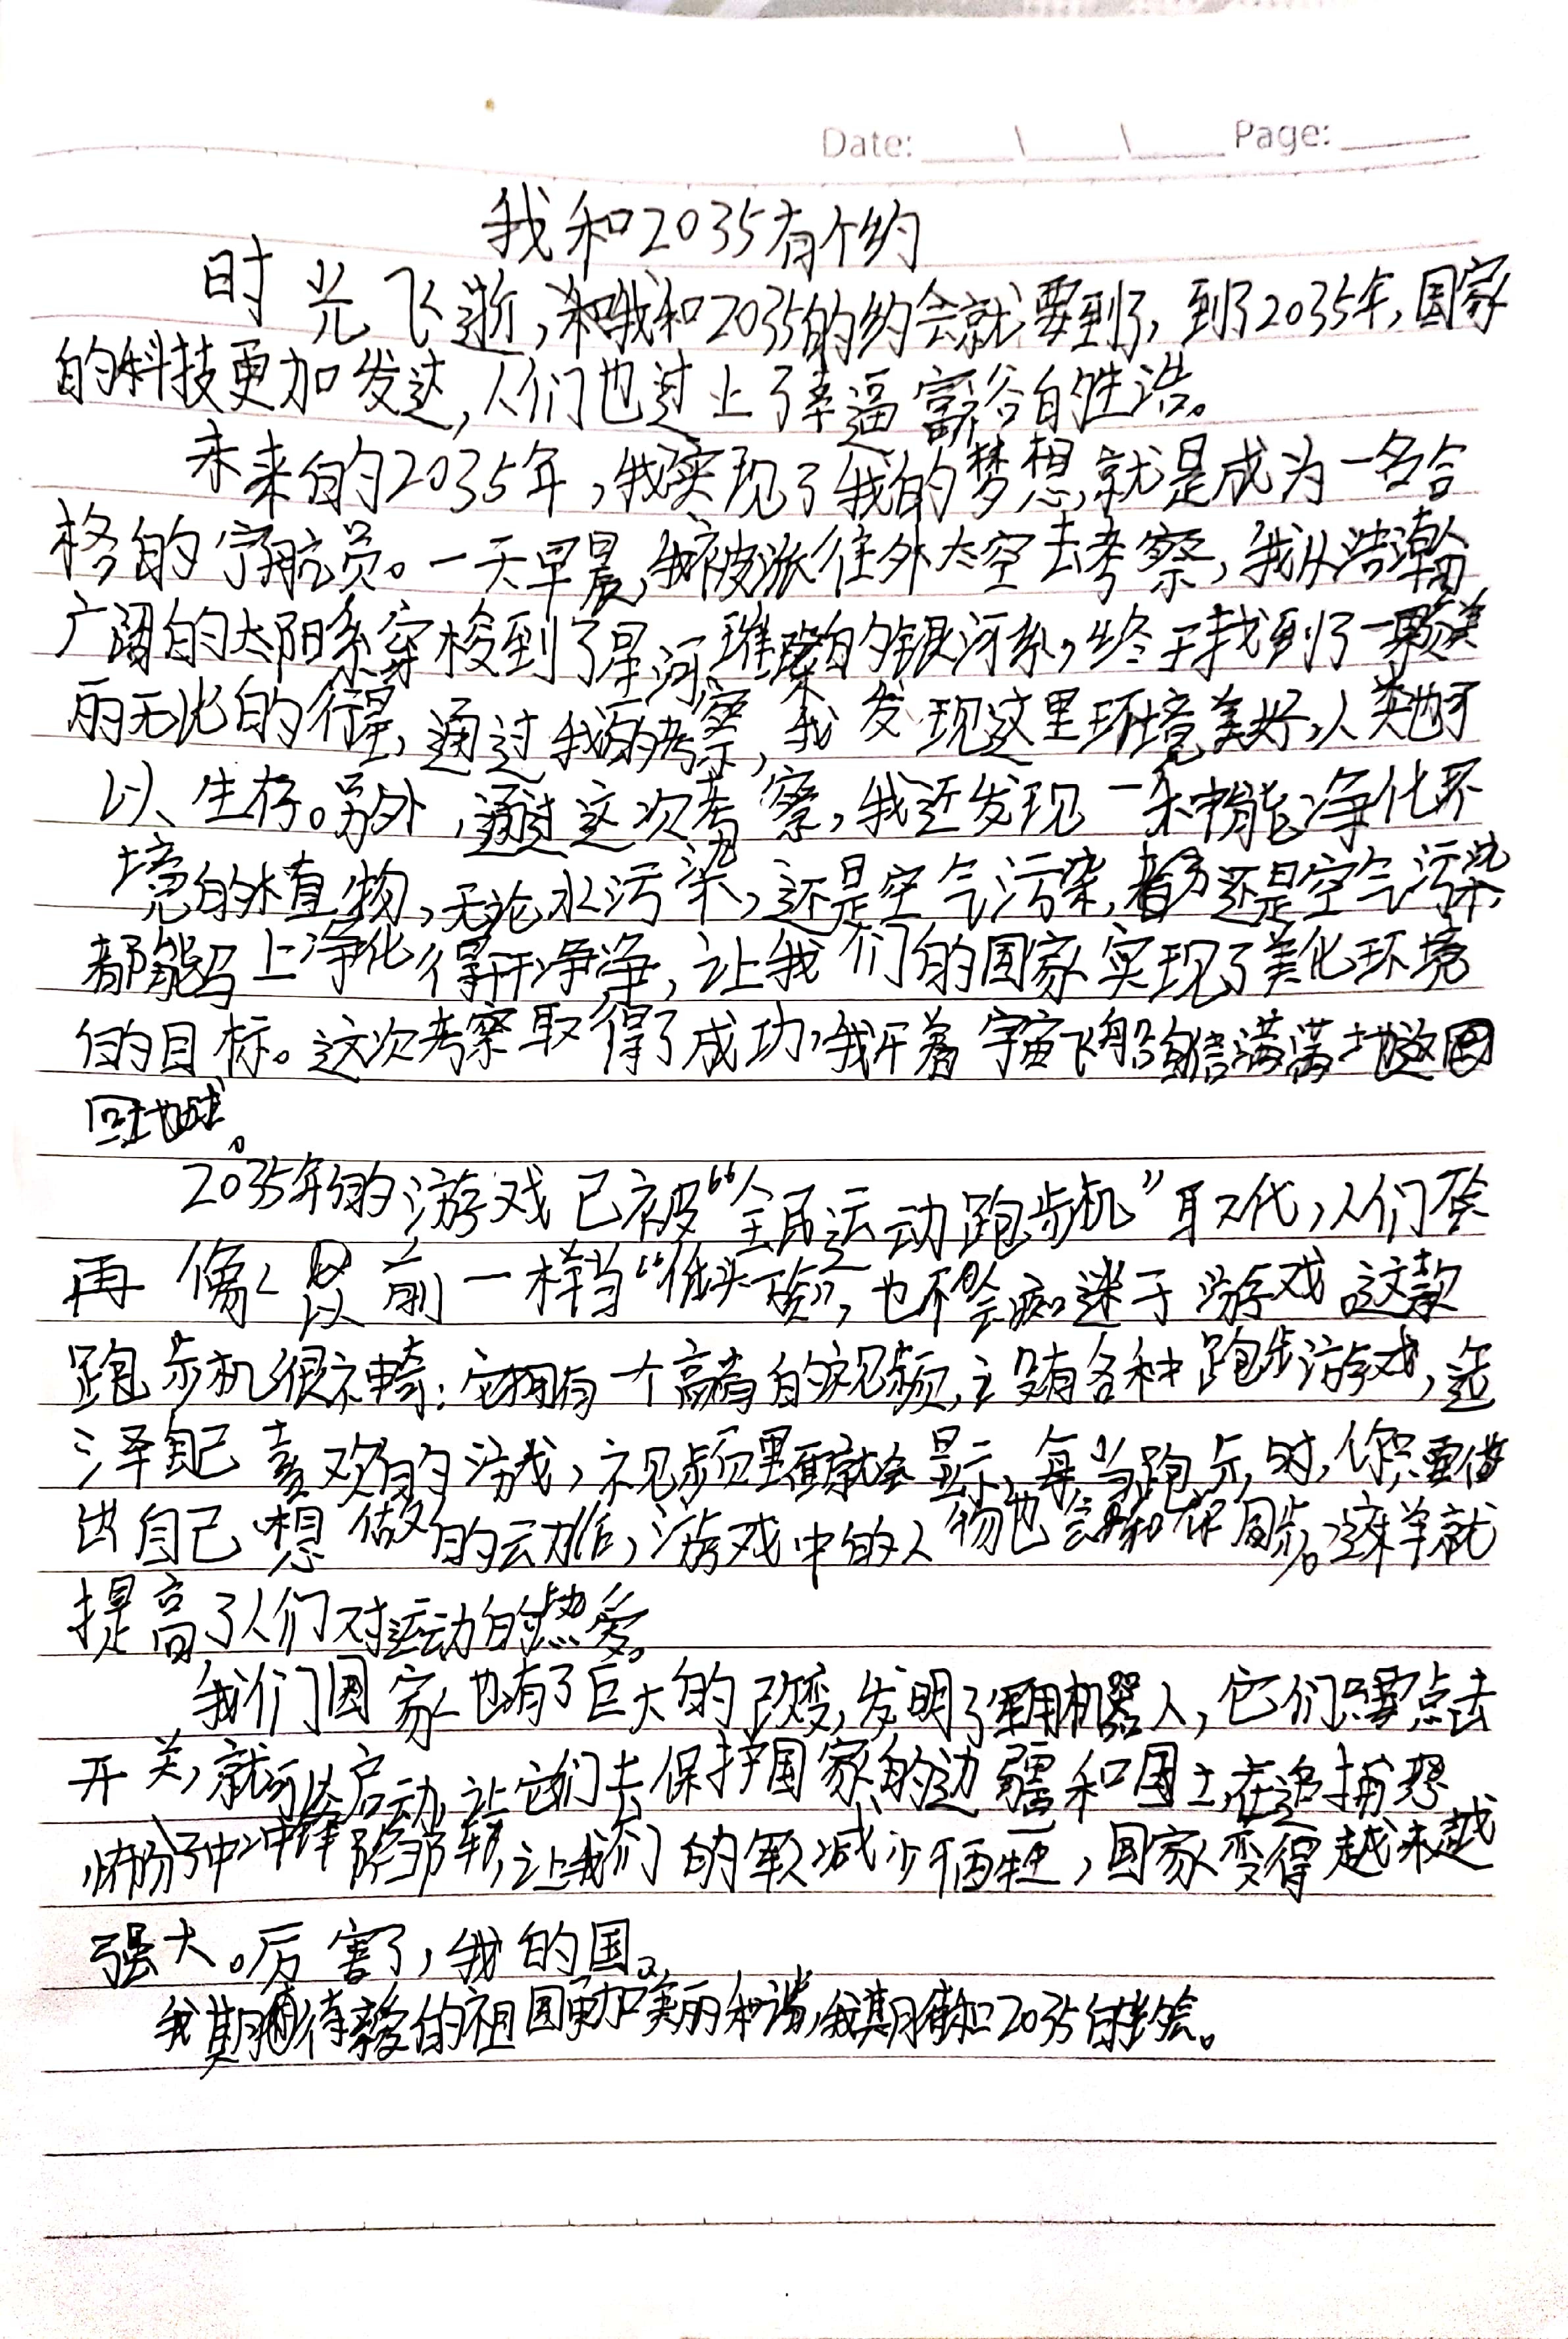 Date: \ \ Page:
我和2035有个约
时光飞逝,我和2035的约会就要到了,到了2035年,国家
的科技更加发达,人们也过上了幸逼富裕的生活。
未来的2035年,我实现了我的梦想,就是成为一名合
格的宇航员。一天早晨,我被派往外太空去考察,我从浩瀚
广阔的太阳系穿梭到了星河璀璨的银河系,终于找到了一颗美
丽无比的行星,通过我的考察,我发现这里环境美好,人类也可
以生存。另外,通过这次考察,我还发现一种能净化环
境的植物,无论水污染,还是空气污染,还是空气污染,
都能马上净化得干干净净,让我们的国家实现了美化环境
的目标。这次考察取得了成功,我开着宇宙飞船自信满满地返回
回地球。
2035年的游戏已被“全民运动跑步机”取代,人们不会
再像以前一样当“低头族”,也不会痴迷于游戏这款
跑步机很神奇:它拥有一个高清的视频,设有各种跑步游戏,选
泽自己喜欢的游戏,视频里面就会显示,每当跑步时,你只要做
出自己想做的动作,游戏中的人物也会和你同步。这样就
提高了人们对运动的热爱。
我们国家也有了巨大的改变,发明了军用机器人,它们只要点击
开关,就可以启动,让它们去保护国家的边疆和国土,在追捕恐
怖份子中冲锋陷阵,让我们的军人减少牺牲,国家变得越来越
强大。厉害了,我的国。
我期待亲爱的祖国更加美丽和谐,我期待和2035的约会。